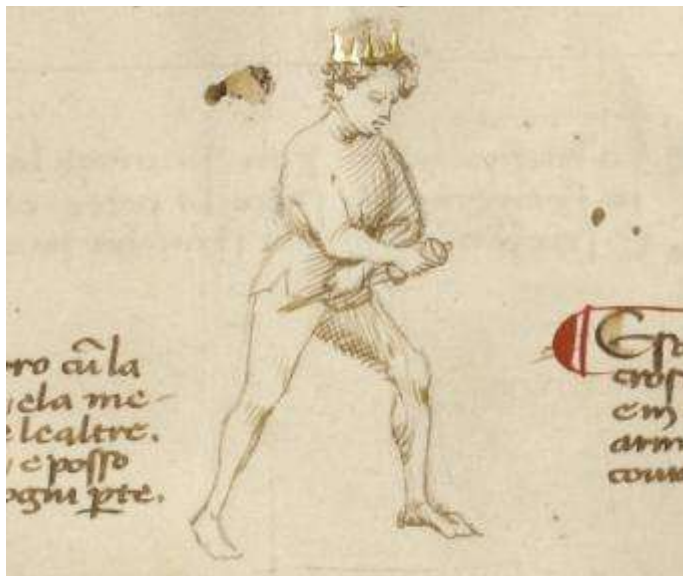 cũ la
ela me-
e lealtre.
e posso
ogni ꝑte.
cros
em
arm